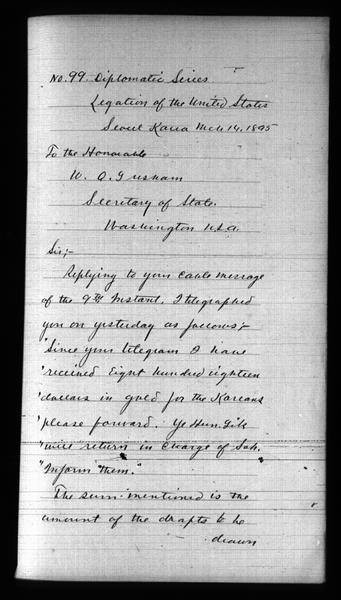 No. 99. Diplomatic Series
Legation of the United States
Seoul Korea Mch 14, 1895
To the Honorable
W. Q. Gresham
Secretary of State.
Washington U.S.A.
Sir;-
Replying to your cable message
of the 9th Instant, I telegraphed
you on yesterday as follows;-
"Since your telegram I have
"received Eight hundred eighteen
"dollars in gold for the Koreans
"please forward. Ye Hun Gik
"will return in charge of Soh.
"Inform them."
The sum mentioned is the
amount of the drafts to be
drawn